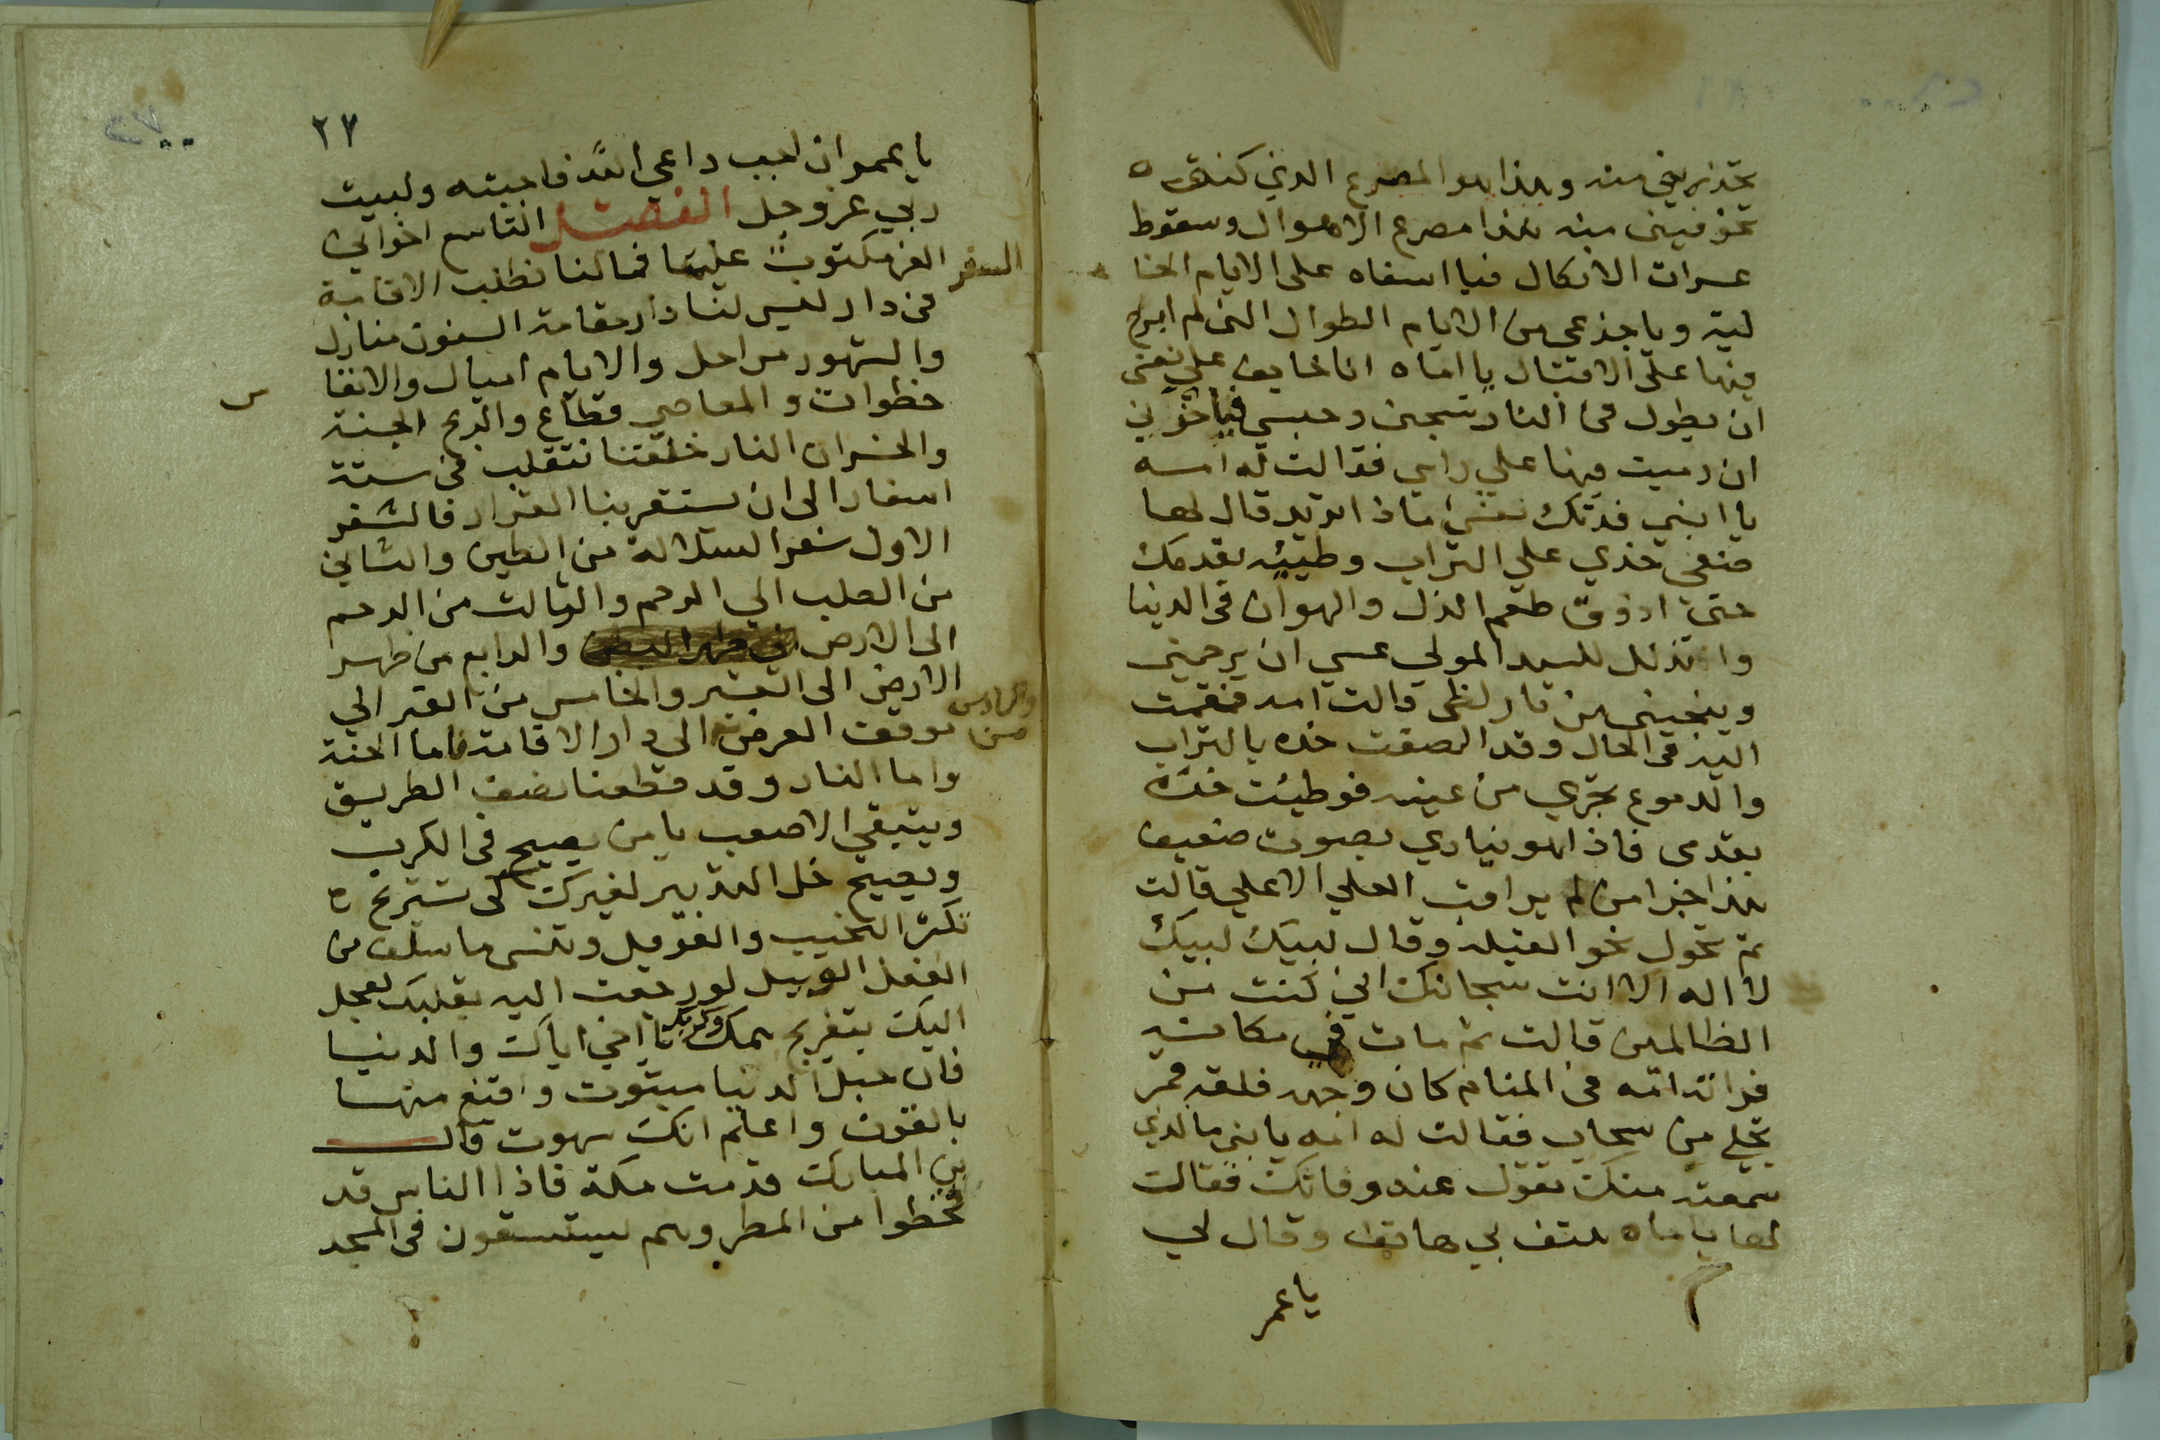 تحذريني منه وهذا هو المصرع الذي كنتي
تخوفيني منه هذا مصرع الاهوال وسقوط
عسرات الانكال فيا اسفاه على الايام الخا
لية ويا جذعي من الايام الطوال التي لم ابرح
فيها على الاقتتال يا اماه انا خايف على نفسي
ان يطول في النار سجني وحبسي فيا حزني
ان رميت فيها على راسي فقالت له امه
يا ابني فدتك نفسي ماذا تريد قال لها
ضعي خدي على التراب وطيئه بقدمك
حتى اذوق طعم الذل والهوان في الدنيا
واتذلل للسيد المولي عسي ان يرحمني
وينجيني من نار لظى قالت امه فقمت
اليه في الحال وقد الصقت خده بالتراب
والدموع تجري من عينه فوطيت خده
بقدمي فاذا هو ينادي بصوت ضعيف
هذا جزا من لم يراقب العلي الاعلي قالت
ثم تحول نحو القبله وقال لبيك لبيك
لا اله الا انت سبحانك اني كنت من
الظالمين قالت ثم مات في مكانه
فراته امه في المنام كان وجهه فلقه قمر
تجلي من سحاب فقالت له امه يا بني ما الذي
سمعته منك تقول عند وفاتك فقالت
لها ياماه هتف بي هاتف وقال لي
يا عمر
٢٧
يا عمر ان اجب داعي الله فاجبته ولبيت
ربي عز وجل الفصل التاسع اخواني
السفر
الغر مكتوب علينا فمالنا نطلب الاقامة
في دار ليس لنا دار مقامة السنون منازل
والشهور مراحل والايام اميال والانفا
س
خطوات والمعاصي قطاع والربح الجنة
والخسران النار خلقتنا نتقلب في ستة
اسفار الى ان يستقر بنا القرار فالسفر
الاول سفر السلالة من الطين والثاني
من الصلب الي الرحم والثالث من الرحم
الى الارض والرابع من ظهر
الارض الى القبر والخامس من القبر الي
والسادس من
موقف العرض الى دار الاقامة فاما الجنة
واما النار وقد قطعنا نصف الطريق
ويتبقي الاصعب يا من يصيح في الكرب
ويصيح خل التدبير لغيرك كى تستريح
تكثر النحيب والعويل وتنسى ما سلف من
الفعل الوبيل لو رجعت اليه بقلبك لعجل
اليك بتفريج همك وكربك يا اخي اياك والدنيا
فان حبل الدنيا مبتوت واقنع منها
بالقوت واعلم انك تموت قال
بن المبارك قدمت مكة فاذا الناس قد
قحطوا من المطر وهم يستسقون في المسجد